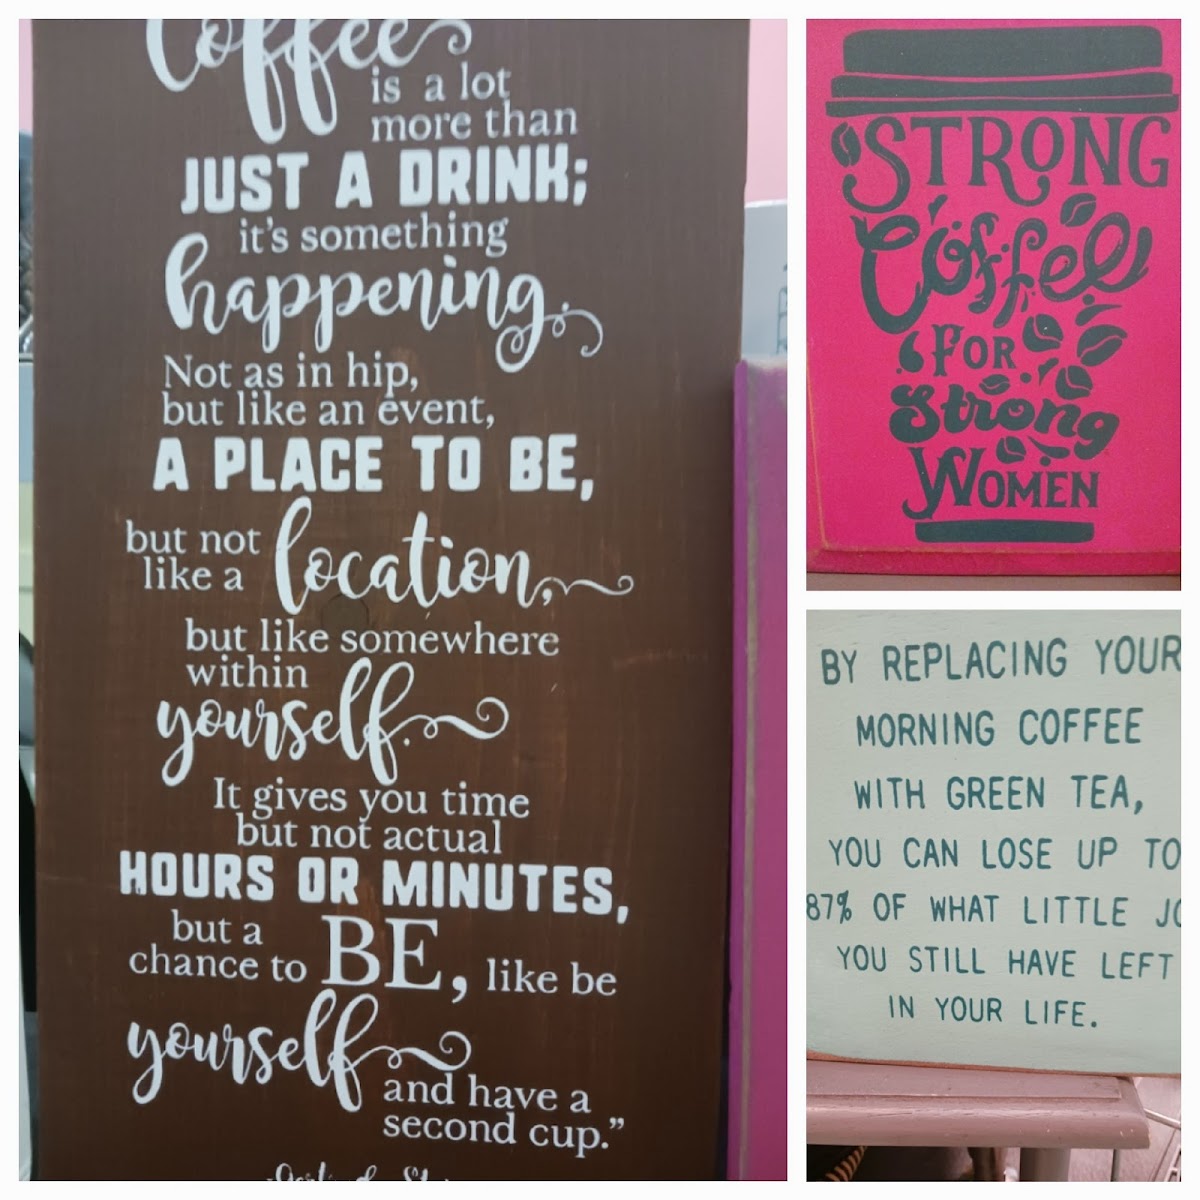 Coffee
is a lot
more than
JUST A DRINK;
it's something
happening.
Not as in hip,
but like an event,
A PLACE TO BE,
but not
like a location,
but like somewhere
within
yourself.
It gives you time
but not actual
HOURS OR MINUTES,
but a
chance to BE, like be
yourself
and have a
second cup.”
STRONG
Coffee
FOR
Strong
WOMEN
BY REPLACING YOUR
MORNING COFFEE
WITH GREEN TEA,
YOU CAN LOSE UP TO
87% OF WHAT LITTLE JO
YOU STILL HAVE LEFT
IN YOUR LIFE.